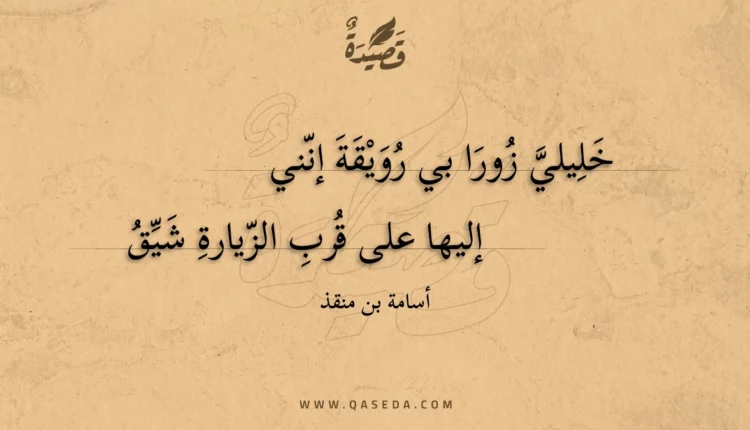 قَصِيدَةٌ
خَلِيليَّ زُورَا بي رُوَيْقَةَ إنّني
إليها على قُربِ الزّيارةِ شَيِّقُ
أسامة بن منقذ
WWW.QASEDA.COM